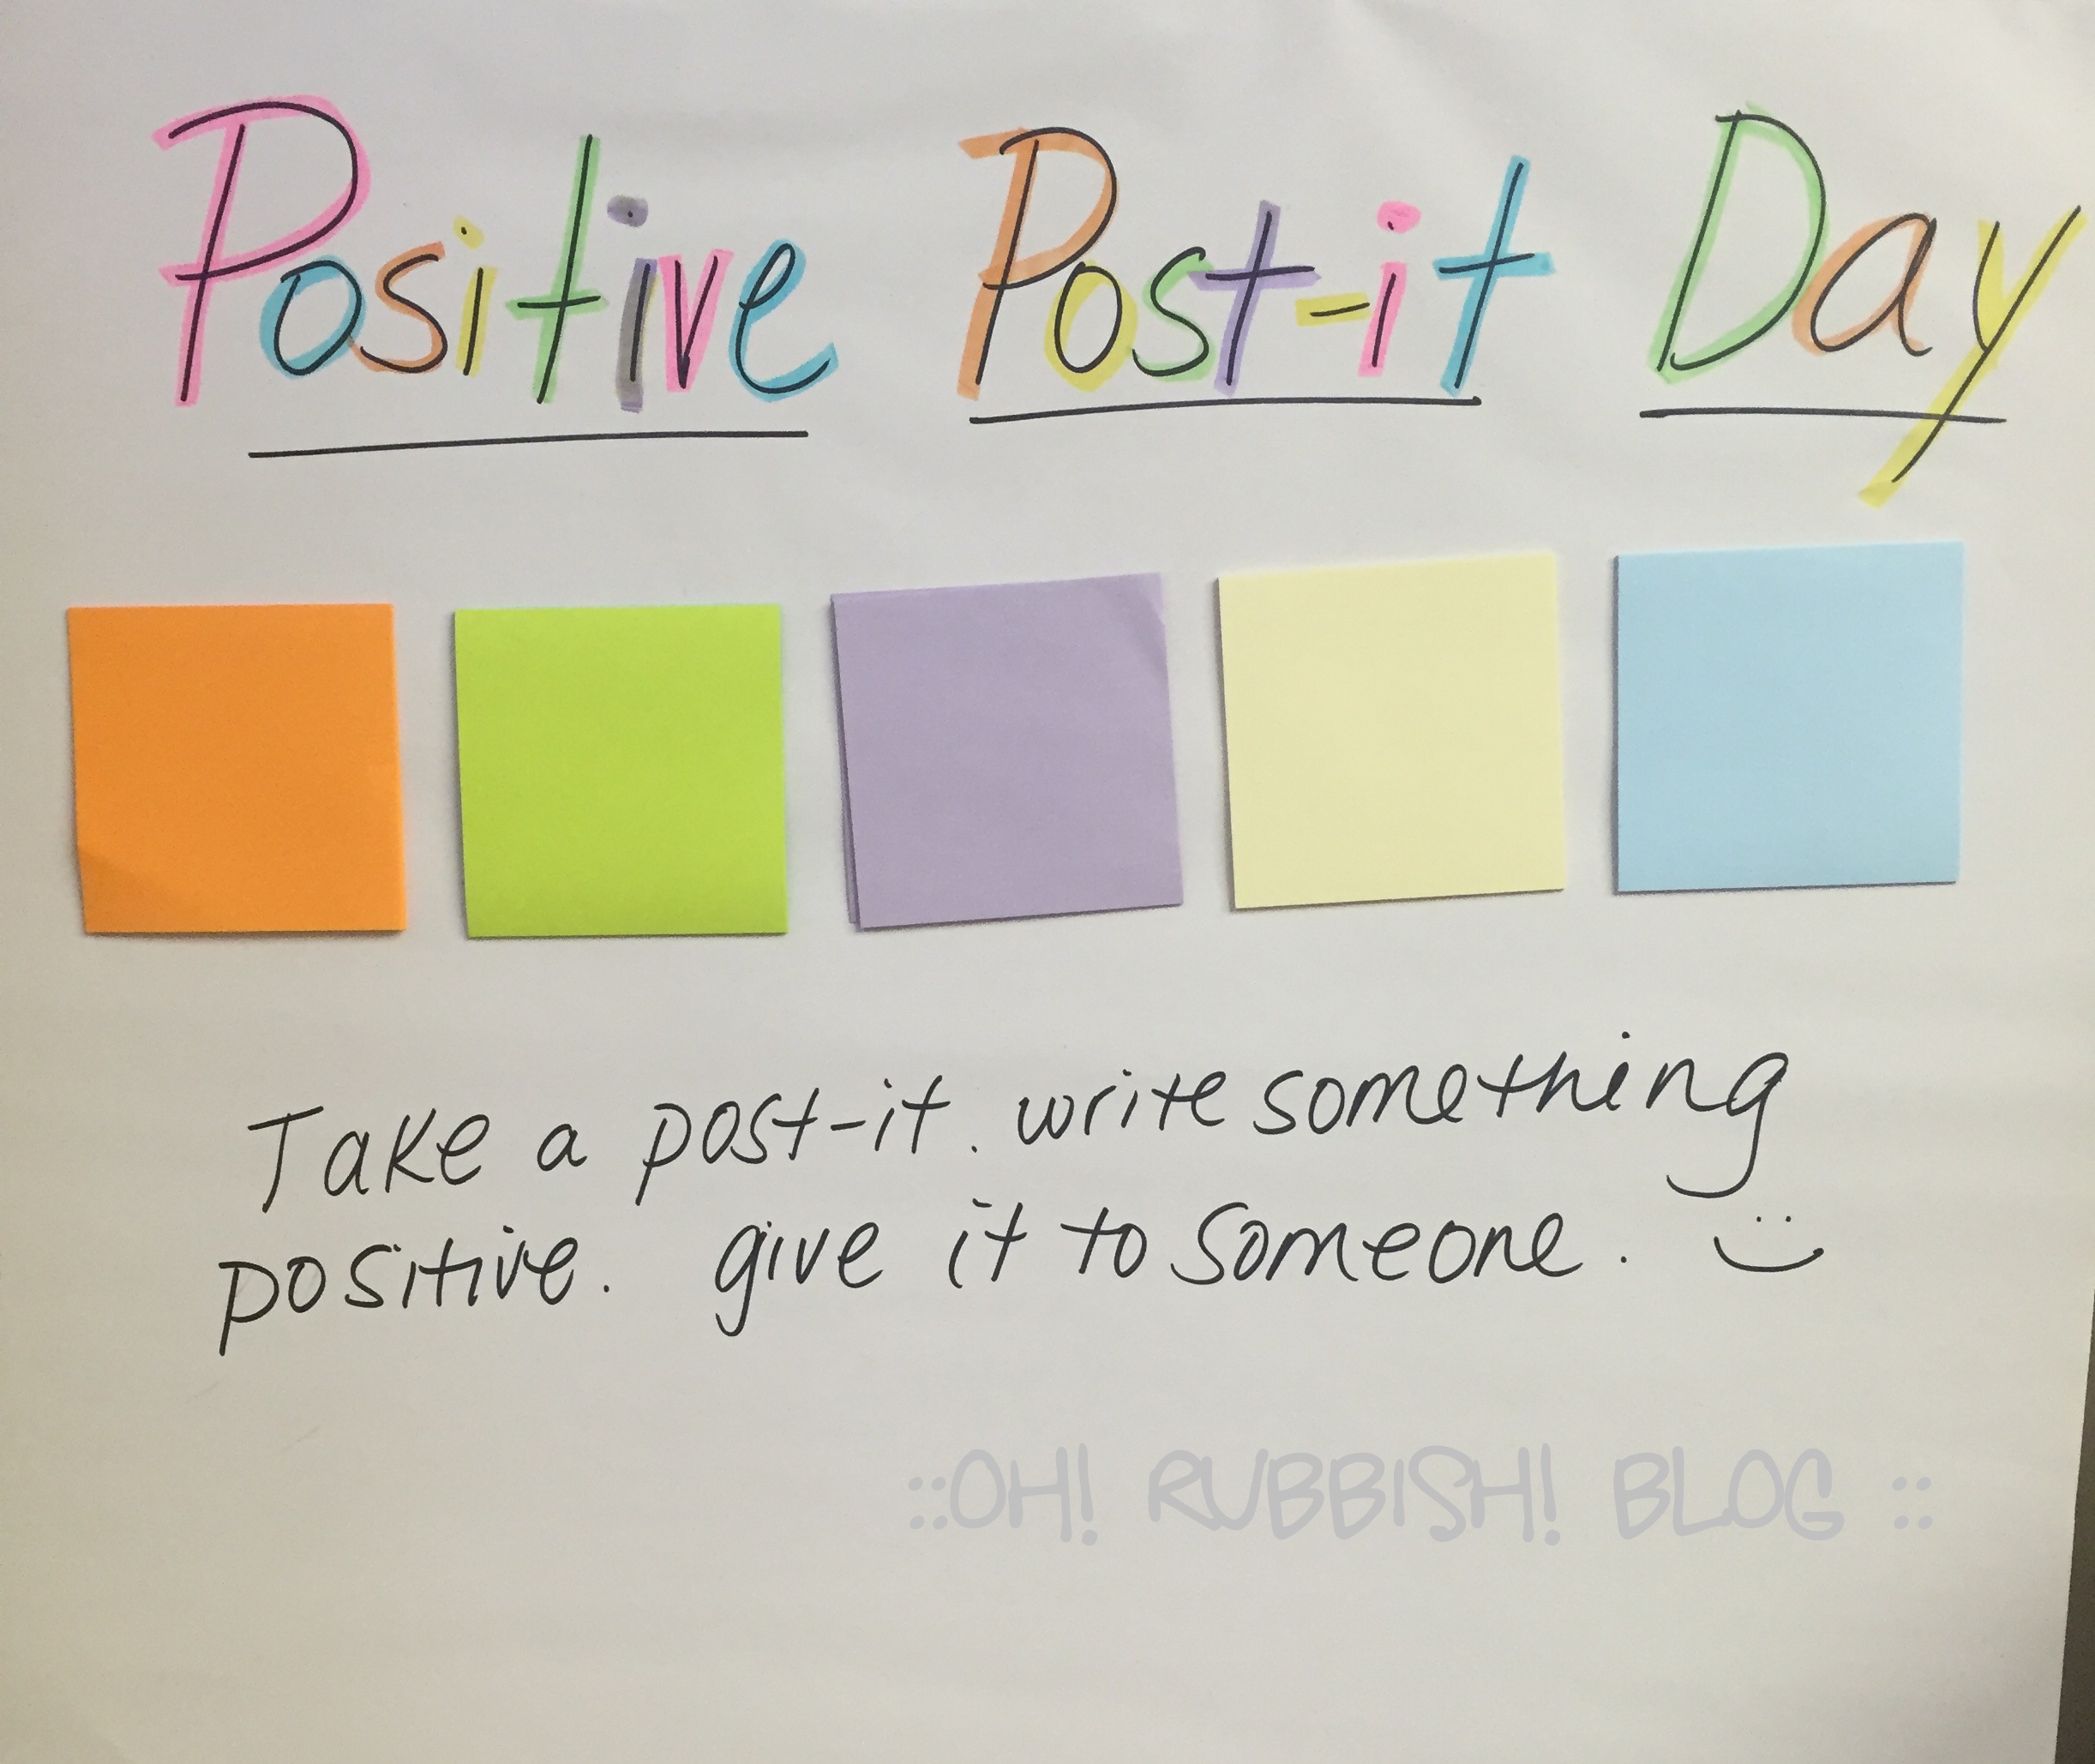 Positive Post-it Day
Take a post-it. write something
positive. give it to someone.
::OH! RUBBISH! BLOG ::